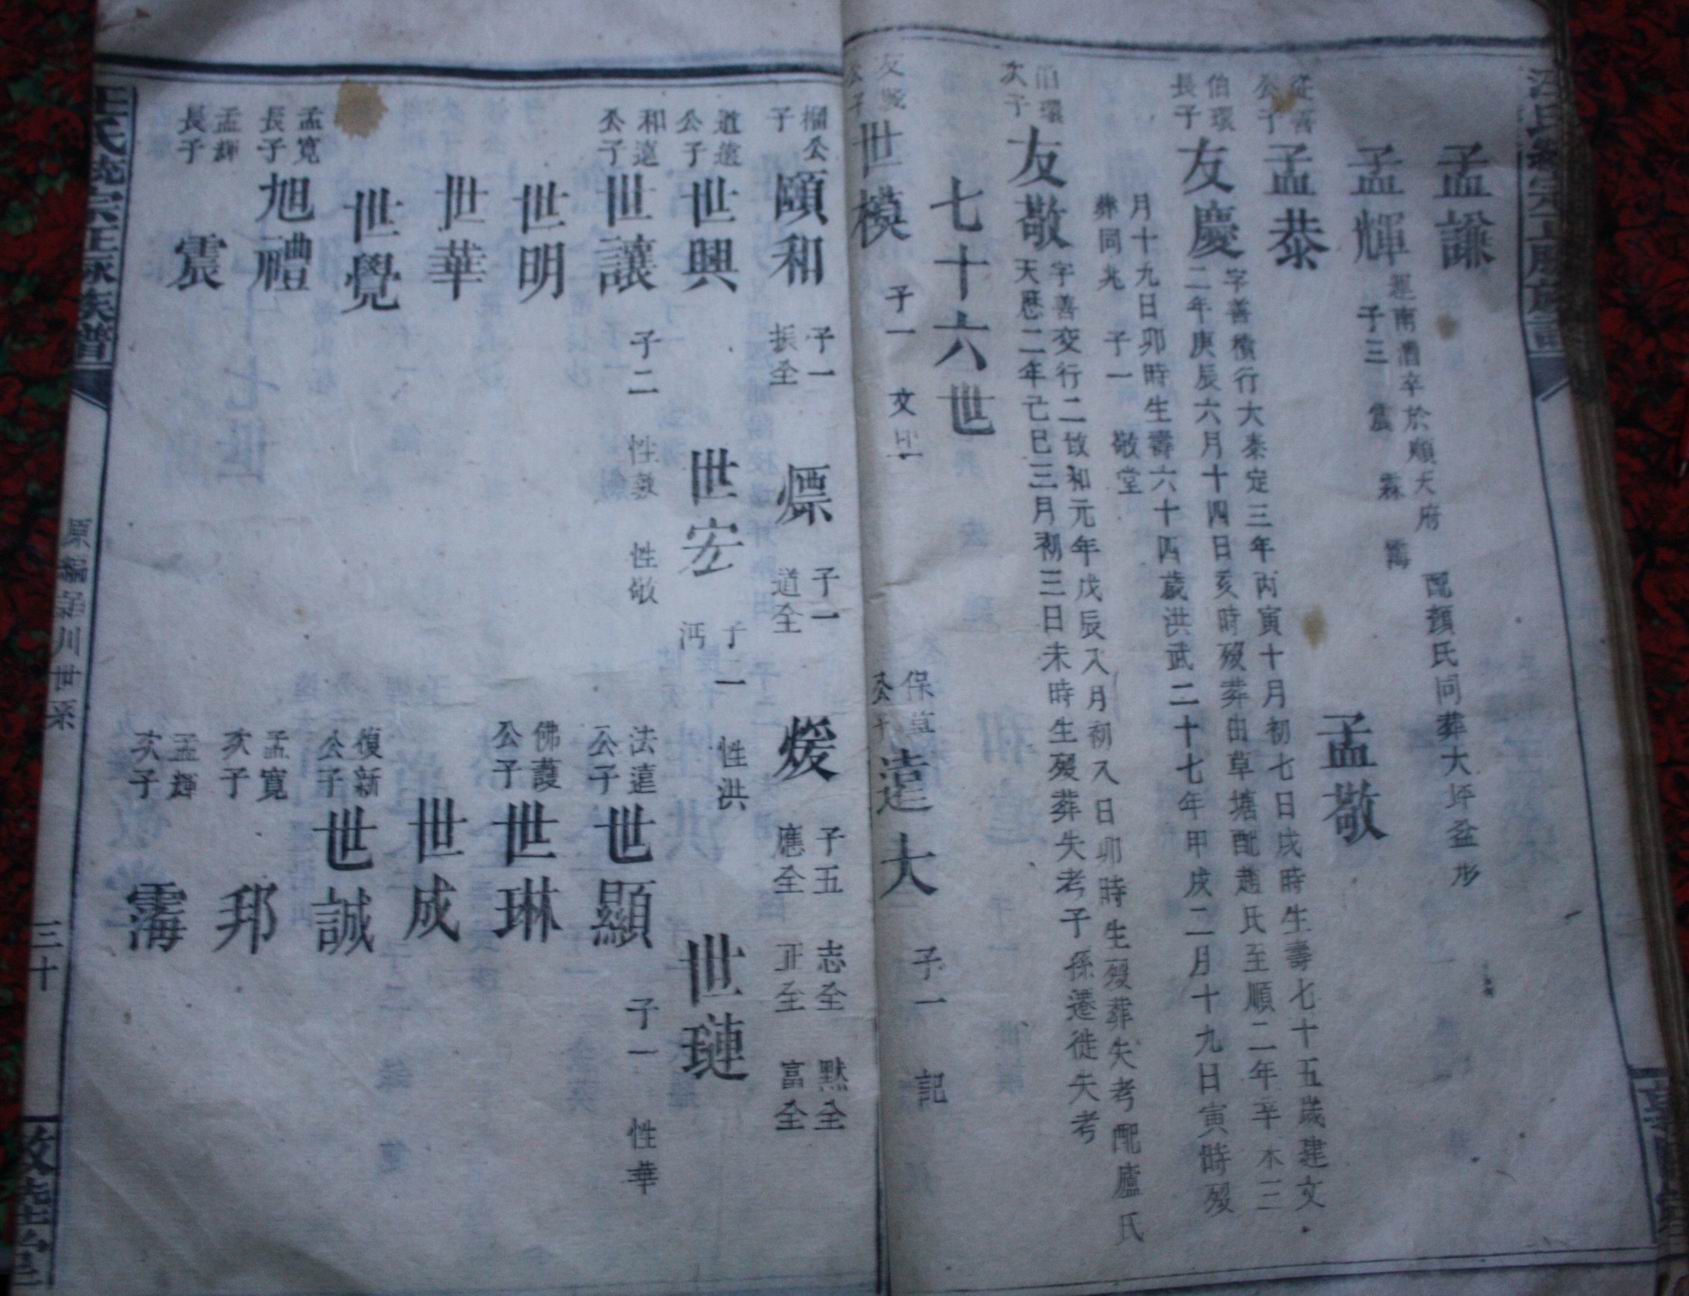 孟謙
孟輝 運南漕卒於順天府 配顏氏同葬大坪盆形
子三 震 霖 霱
從善公子 孟恭 孟敬
伯環長子 友慶 字善積行大泰定三年丙寅十月初七日戌時生壽七十五歲建文
二年庚辰六月十四日亥時歿葬由草塘配趙氏至順二年辛未三
月十九日卯時生壽六十四歲洪武二十七年甲戌二月十九日寅時歿
葬同兆 子一 敬堂
伯環次子 友敬 字善交行二致和元年戊辰八月初八日卯時生歿葬失考配廬氏
天歷二年己巳三月初三日未時生歿葬失考子孫遷徙失考
七十六世
公子 世模 子一 文
保堂公子 遠大 子一 記
榴公子 頤和 子一 振全 㷸 子一 道全 煖 子五 應全 志全 正全 默全 富全
道遠公子 世興 世宏 子一 性洪 世璉
和遠公子 世讓 子二 性敦 性敬 法遠公子 世顯 子一 性華
世明 佛護公子 世琳
世華 世成
世覺 復新公子 世誠
孟寬長子 旭禮 孟寬次子 邦
孟輝長子 震 孟輝次子 霱
氏統宗正脉族譜
原編 川世系
三十
敦睦堂